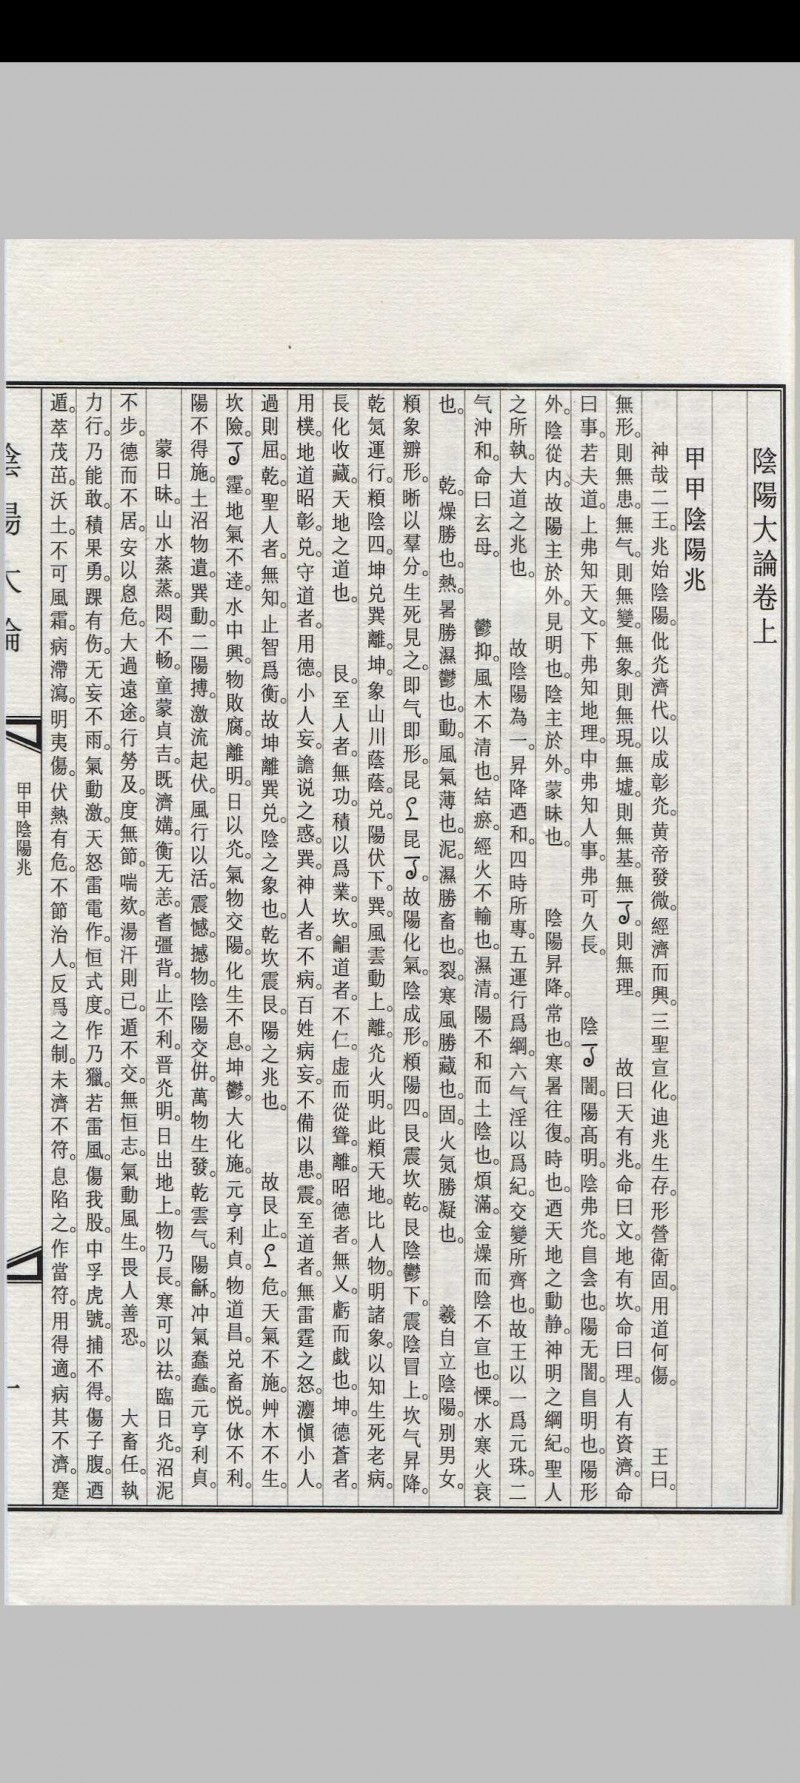 陰陽大論卷上
甲甲陰陽兆
神哉二王。兆始陰陽。仳灮濟代。以成彰灮。黃帝發微。經濟而興。三聖宣化。迪兆生存。形營衛固。用道何傷。　王曰。
無形。則無患。無气。則無變。無象。則無現。無墟。則無基。無則無理。　故曰天有兆。命曰文。地有坎。命曰理。人有資濟。命
曰事。若夫道。上弗知天文。下弗知地理。中弗知人事。弗可久長。　陰闇。陽高明。陰弗灮。自含也。陽无闇。自明也。陽形
外。陰從内。故陽主於外。見明也。陰主於外。蒙昧也。　陰陽昇降。常也。寒暑往復。時也。迺天地之動静。神明之綱紀。聖人
之所執。大道之兆也。　故陰陽為一。昇降迺和。四時所專。五運行爲綱。六气淫以爲紀。交變所齊也。故王以一爲元珠。二
气沖和。命曰玄母。　鬱抑。風木不清也。結瘀。經火不輸也。濕清。陽不和而土陰也。煩滿。金燥而陰不宣也。慄。水寒火衰
也。　乾。燥勝也。熱。暑勝濕鬱也。動。風氣薄也。泥。濕勝畜也。裂。寒風勝藏也。固。火気勝凝也。　羲自立陰陽。別男女。
頪象辧形。晰以羣分。生死見之。即气即形。昆昆。故陽化氣。陰成形。頪陽四。艮震坎乾。艮陰鬱下。震陰冒上。坎气昇降。
乾気運行。頪陰四。坤兑巽離。坤。象山川蔭蔭。兑。陽伏下。巽。風雲動上。離。灮火明。此頪天地。比人物。明諸象。以知生死老病。
長化收藏。天地之道也。　艮。至人者。無功。積以爲業。坎。韶道者。不仁。虚而從聳。離。昭德者。無乂。虧而戯也。坤。德蒼者。
用樸。地道昭彰。兑。守道者。用德。小人妄。譫说之惑。巽。神人者。不病。百姓病妄。不備以患。震。至道者。無雷霆之怒。瀍愼小人。
過則屈。乾。聖人者。無知。止智爲衡。故坤離巽兑。陰之象也。乾坎震艮。陽之兆也。　故艮止。危。天氣不施。艸木不生。
坎險。霪。地氣不逹。水中興。物敗腐。離明。日以灮。氣物交陽。化生不息。坤鬱。大化施。元亨利貞。物道昌。兑畜悦。㳜不利。
陽不得施。土沼物遺。巽動。二陽搏。激流起伏。風行以活。震憾。撼物。陰陽交倂。萬物生發。乾雲气。陽龢。冲氣蠢蠢。元亨利貞。
蒙日昧。山水蒸蒸。悶不畅。童蒙貞吉。既濟媾。衡无恙。耆彊背。止不利。晋灮明。日出地上。物乃長。寒可以祛。臨日灮。沼泥
不步。德而不居。安以恖危。大過遠途。行勞及。度無節。喘欬。湯汗則已。遁不交。無恒志。氣動風生。畏人善恐。　大畜任。執
力行。乃能敢。積果勇。踝有伤。无妄不雨。氣動激。天怒雷電作。恒式度。作乃獵。若雷風。傷我股。中孚虎號。捕不得。傷子腹。迺
遁。萃茂茁。沃土。不可風霜。病滯瀉。明夷傷。伏熱有危。不節治人。反爲之制。未濟不符。息陷之。作當符。用得適。病其不濟。蹇
陰陽大論
甲甲陰陽兆
一